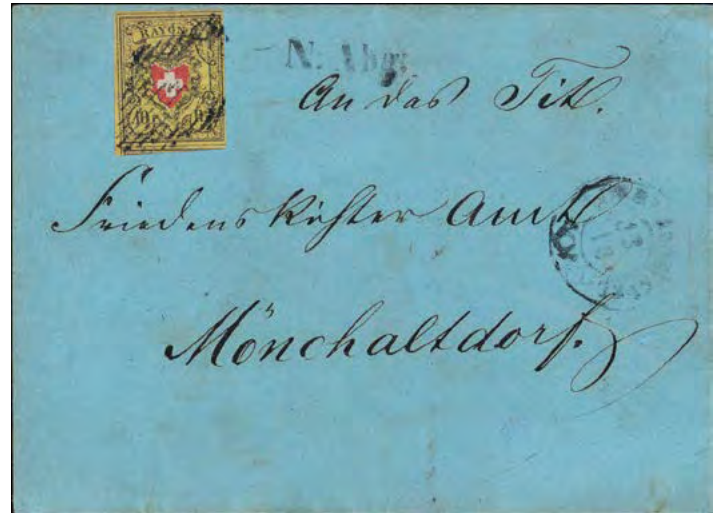 RAYON
10 Rp
N. Abg:
An das Tit.
Friedens Richter Amt
Mönchaltdorf.